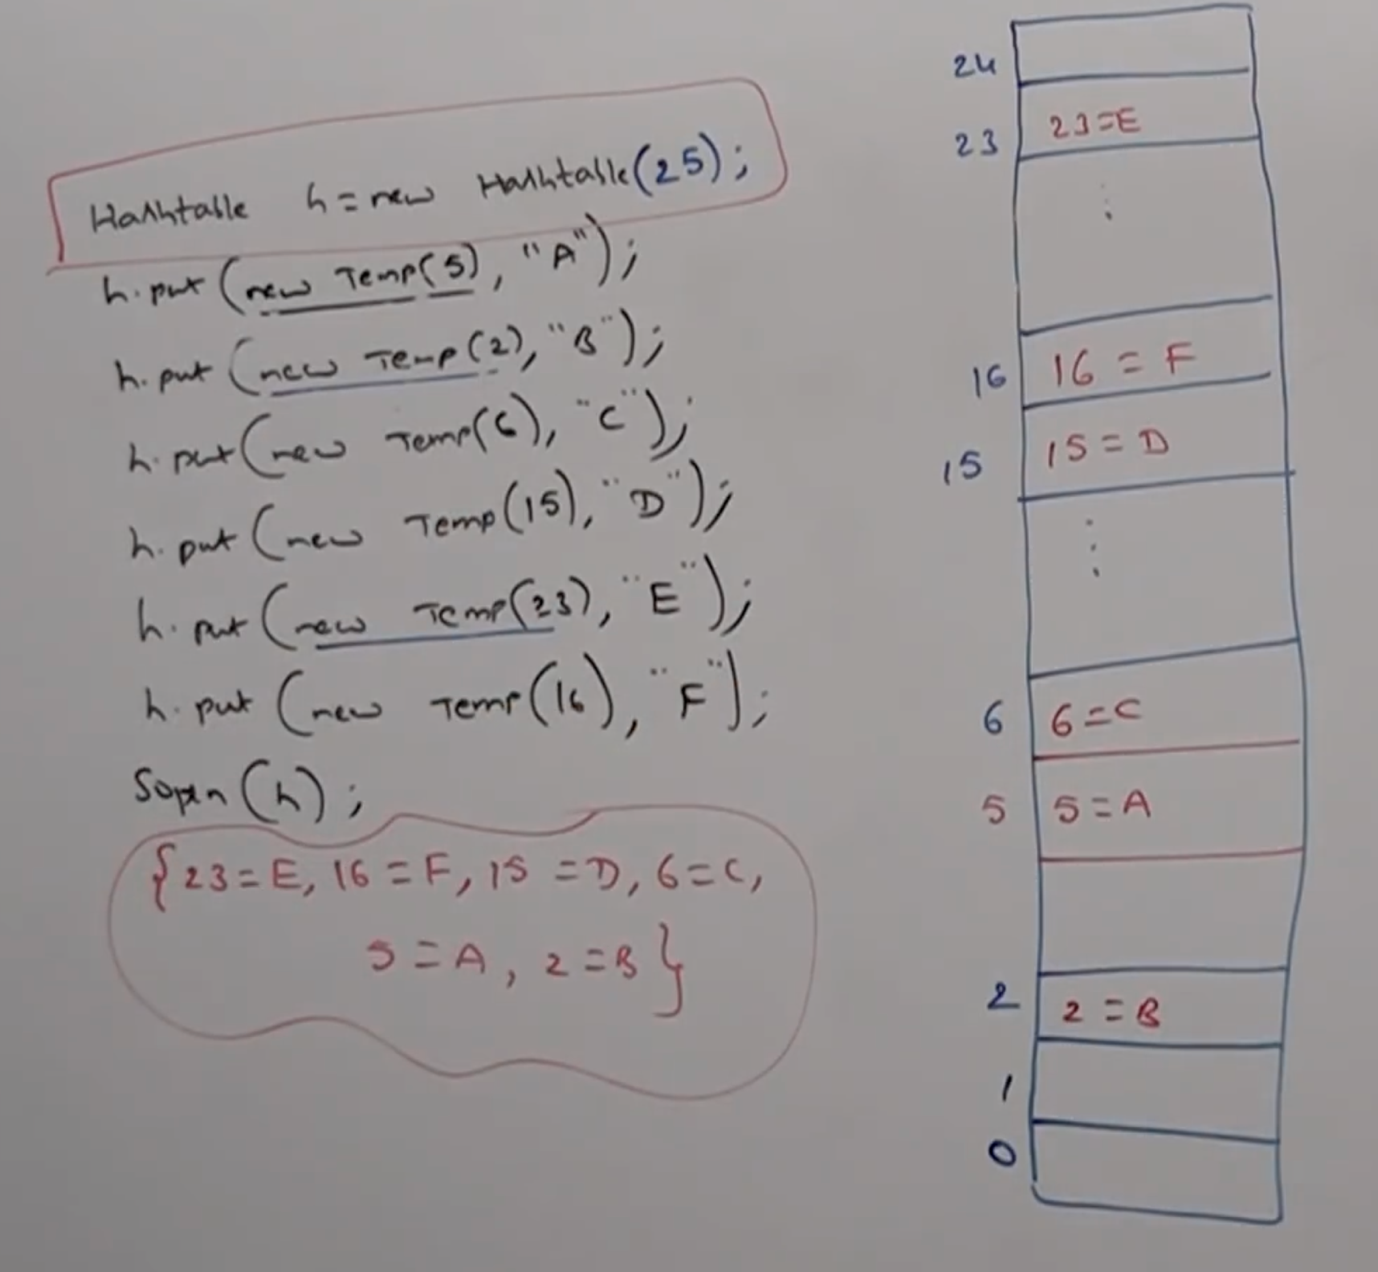 Hashtable h = new Hashtable(25);
h.put (new Temp(5), "A");
h.put (new Temp(2), "B");
h.put (new Temp(6), "C");
h.put (new Temp(15), "D");
h.put (new Temp(23), "E");
h.put (new Temp(16), "F");
Sopln (h);
{23=E, 16=F, 15=D, 6=C,
5=A, 2=B}
24
23 23=E
16 16=F
15 15=D
6 6=C
5 5=A
2 2=B
1
0